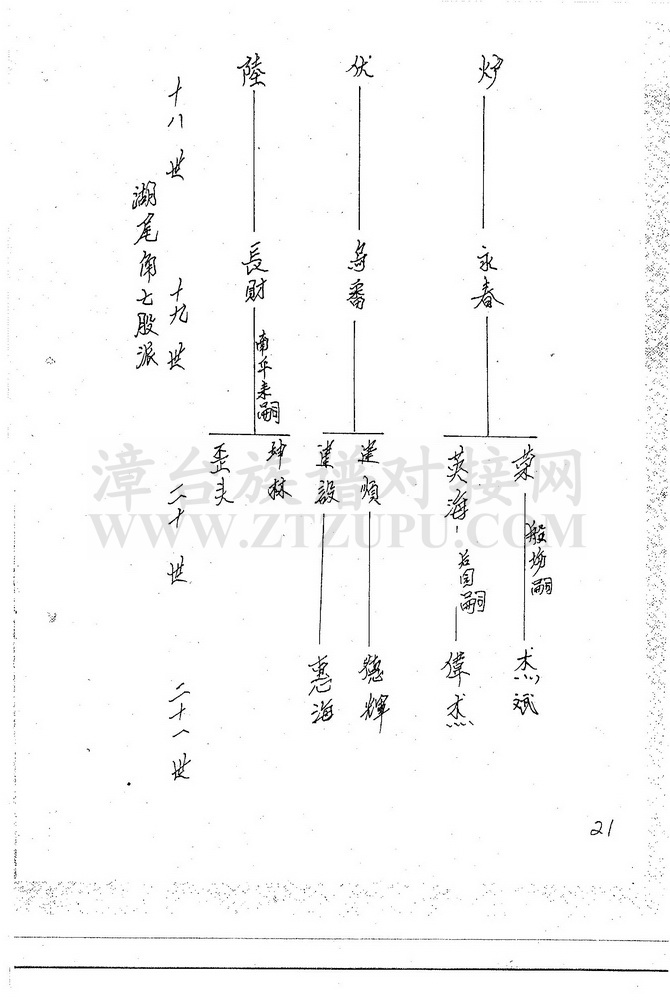 炉
永春
荣
般場嗣
杰斌
英海
后園嗣
偉杰
伏
烏番
建順
德輝
建設
惠海
陸
長財
南平来嗣
坤林
歪夫
十八世
十九世
二十世
二十一世
湖尾角七股派
21
漳台族谱对接网
WWW.ZTZUPU.COM